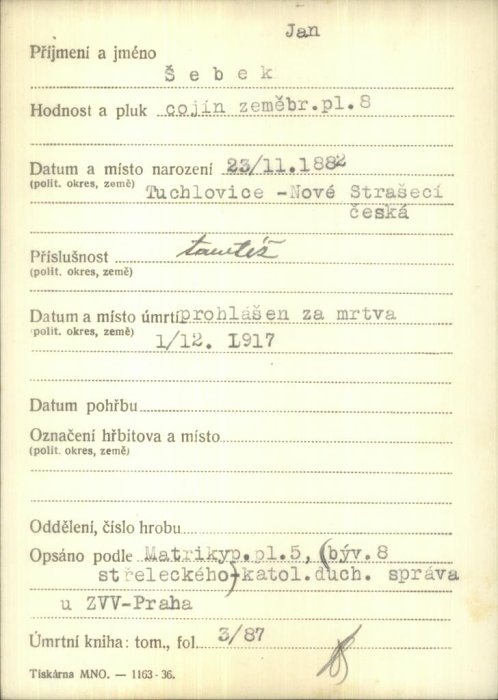 Jan
Příjmení a jméno
Šebek
Hodnost a pluk cojín zeměbr.pl.8
Datum a místo narození 23/11.1882
(polit. okres, země) Tuchlovice -Nové Strašecí
česká
Příslušnost tamtéž
(polit. okres, země)
Datum a místo úmrtí prohlášen za mrtva
(polit. okres, země) 1/12. 1917
Datum pohřbu
Označení hřbitova a místo
(polit. okres, země)
Oddělení, číslo hrobu
Opsáno podle Matrikyp.pl.5, (býv.8
střeleckého)-katol.duch. správa
u ZVV-Praha
Úmrtní kniha: tom., fol. 3/87
Tiskárna MNO. — 1163-36.